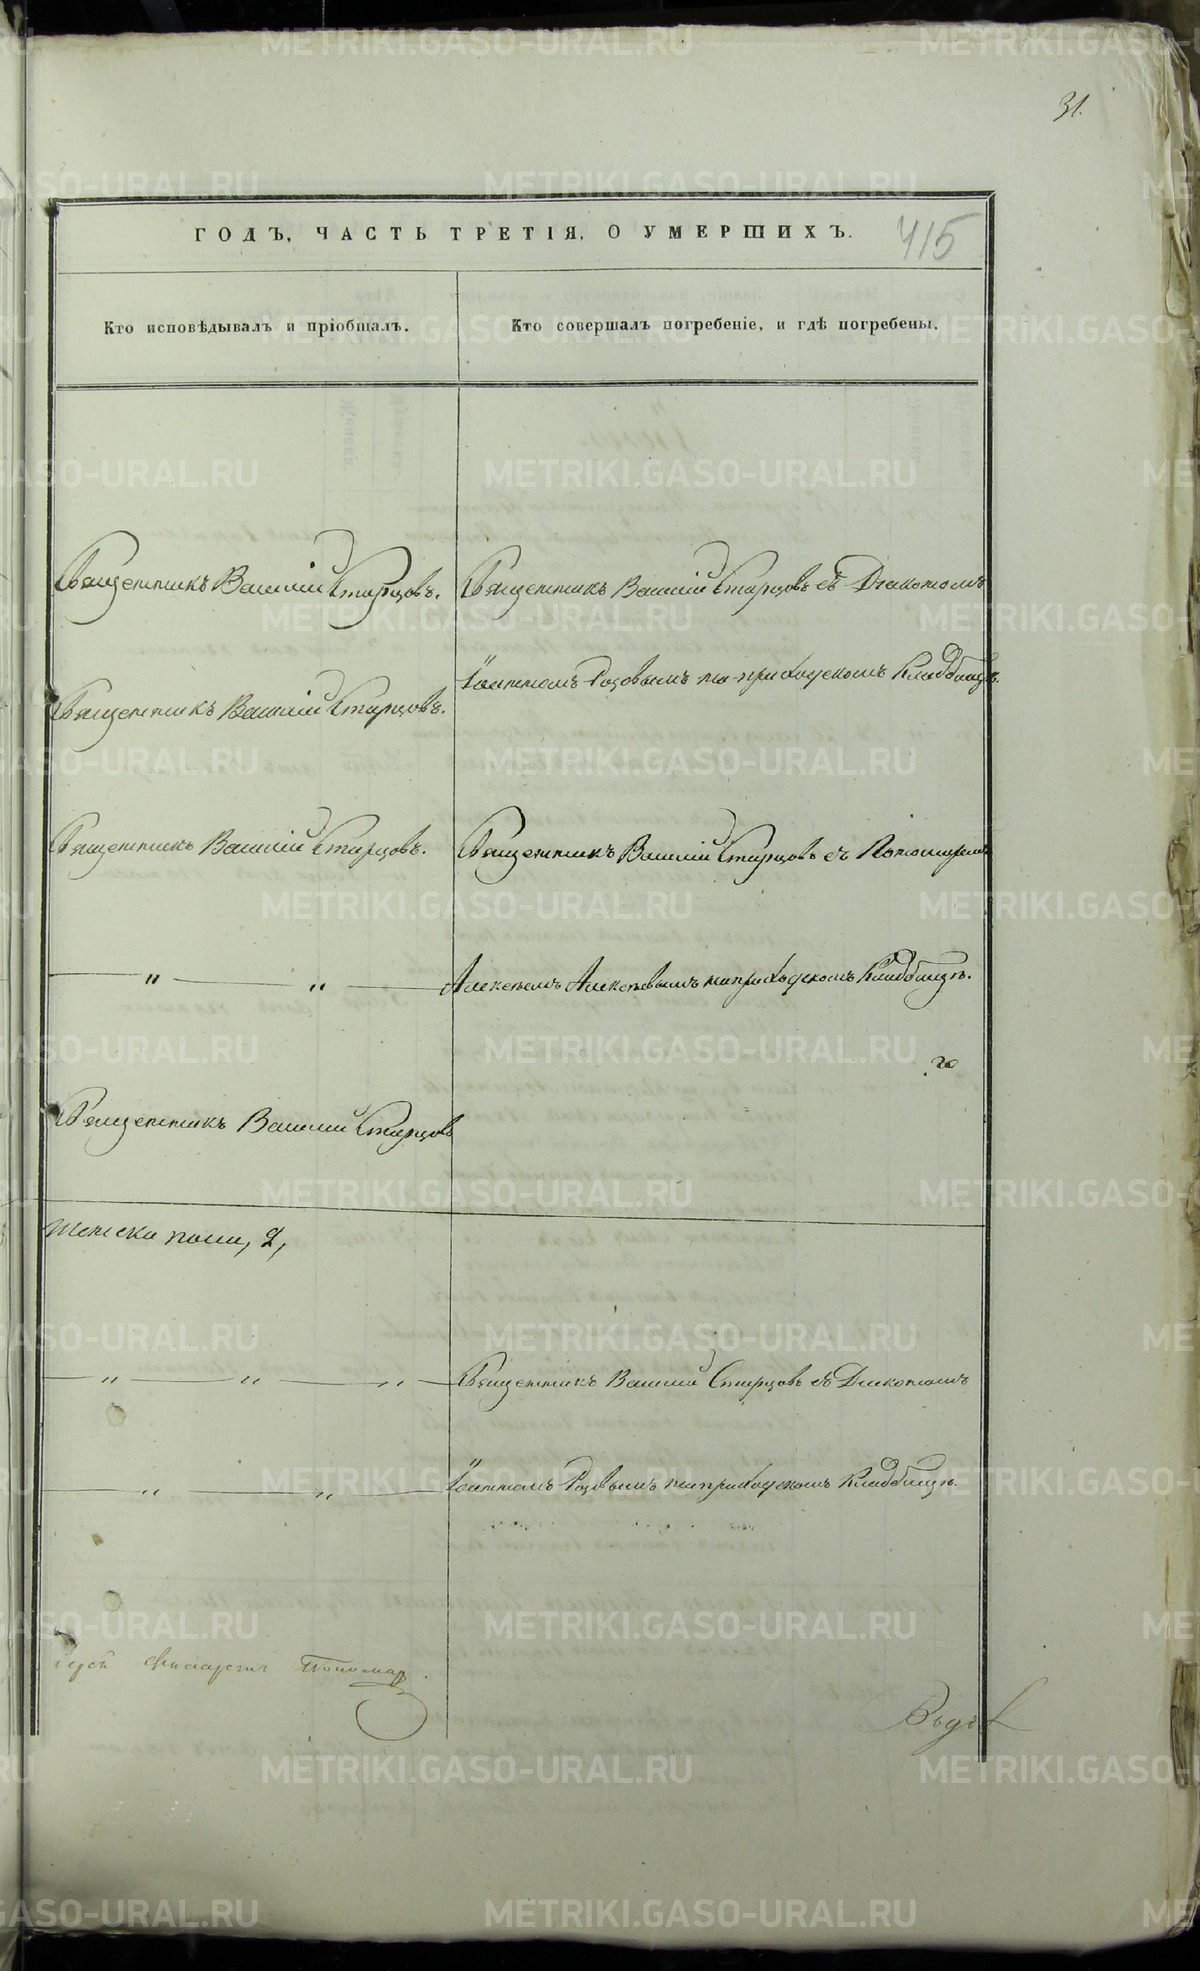 31.
ГОДЪ, ЧАСТЬ ТРЕТІЯ, О УМЕРШИХЪ.
415
Кто исповѣдывалъ и пріобщалъ.
Кто совершалъ погребеніе, и гдѣ погребены.
Священникъ Василій Старцовъ.
Священникъ Василій Старцовъ съ Діакономъ
Іоанномъ Родовымъ на приходскомъ Кладбищѣ.
Священникъ Василій Старцовъ.
Священникъ Василій Старцовъ.
Священникъ Василій Старцовъ съ Пономаремъ
— " — " —
Алексѣемъ Алексѣевымъ на приходскомъ Кладбищѣ.
Священникъ Василій Старцовъ
женска пола, 2,
— " — " — " —
Священникъ Василій Старцовъ съ Діакономъ
" " —
Іоанномъ Родовымъ на приходскомъ Кладбищѣ.
METRIKI.GASO-URAL.RU